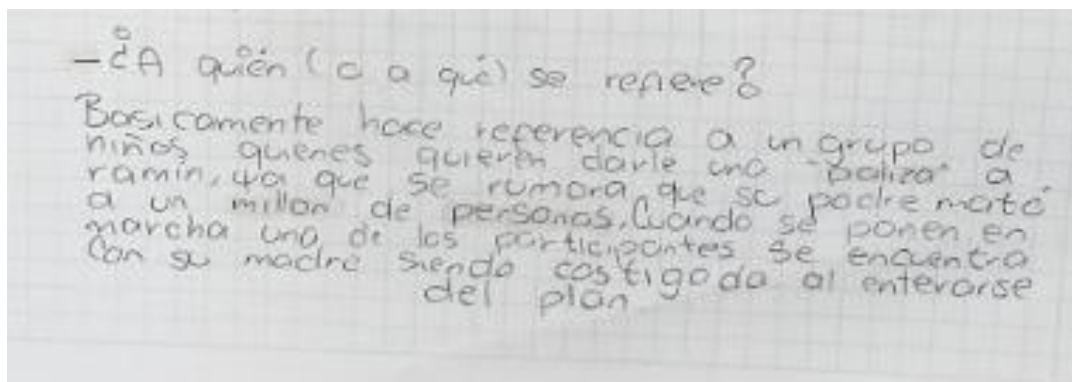 - ¿A quién (o a qué) se refiere?
Basicamente hace referencia a un grupo de
niños quienes quieren darle una "paliza" a
ramin, ya que se rumora que su padre mató
a un millon de personas. Cuando se ponen en
marcha una de los participantes se encuentra
Con su madre siendo castigada al enterarse
del plan